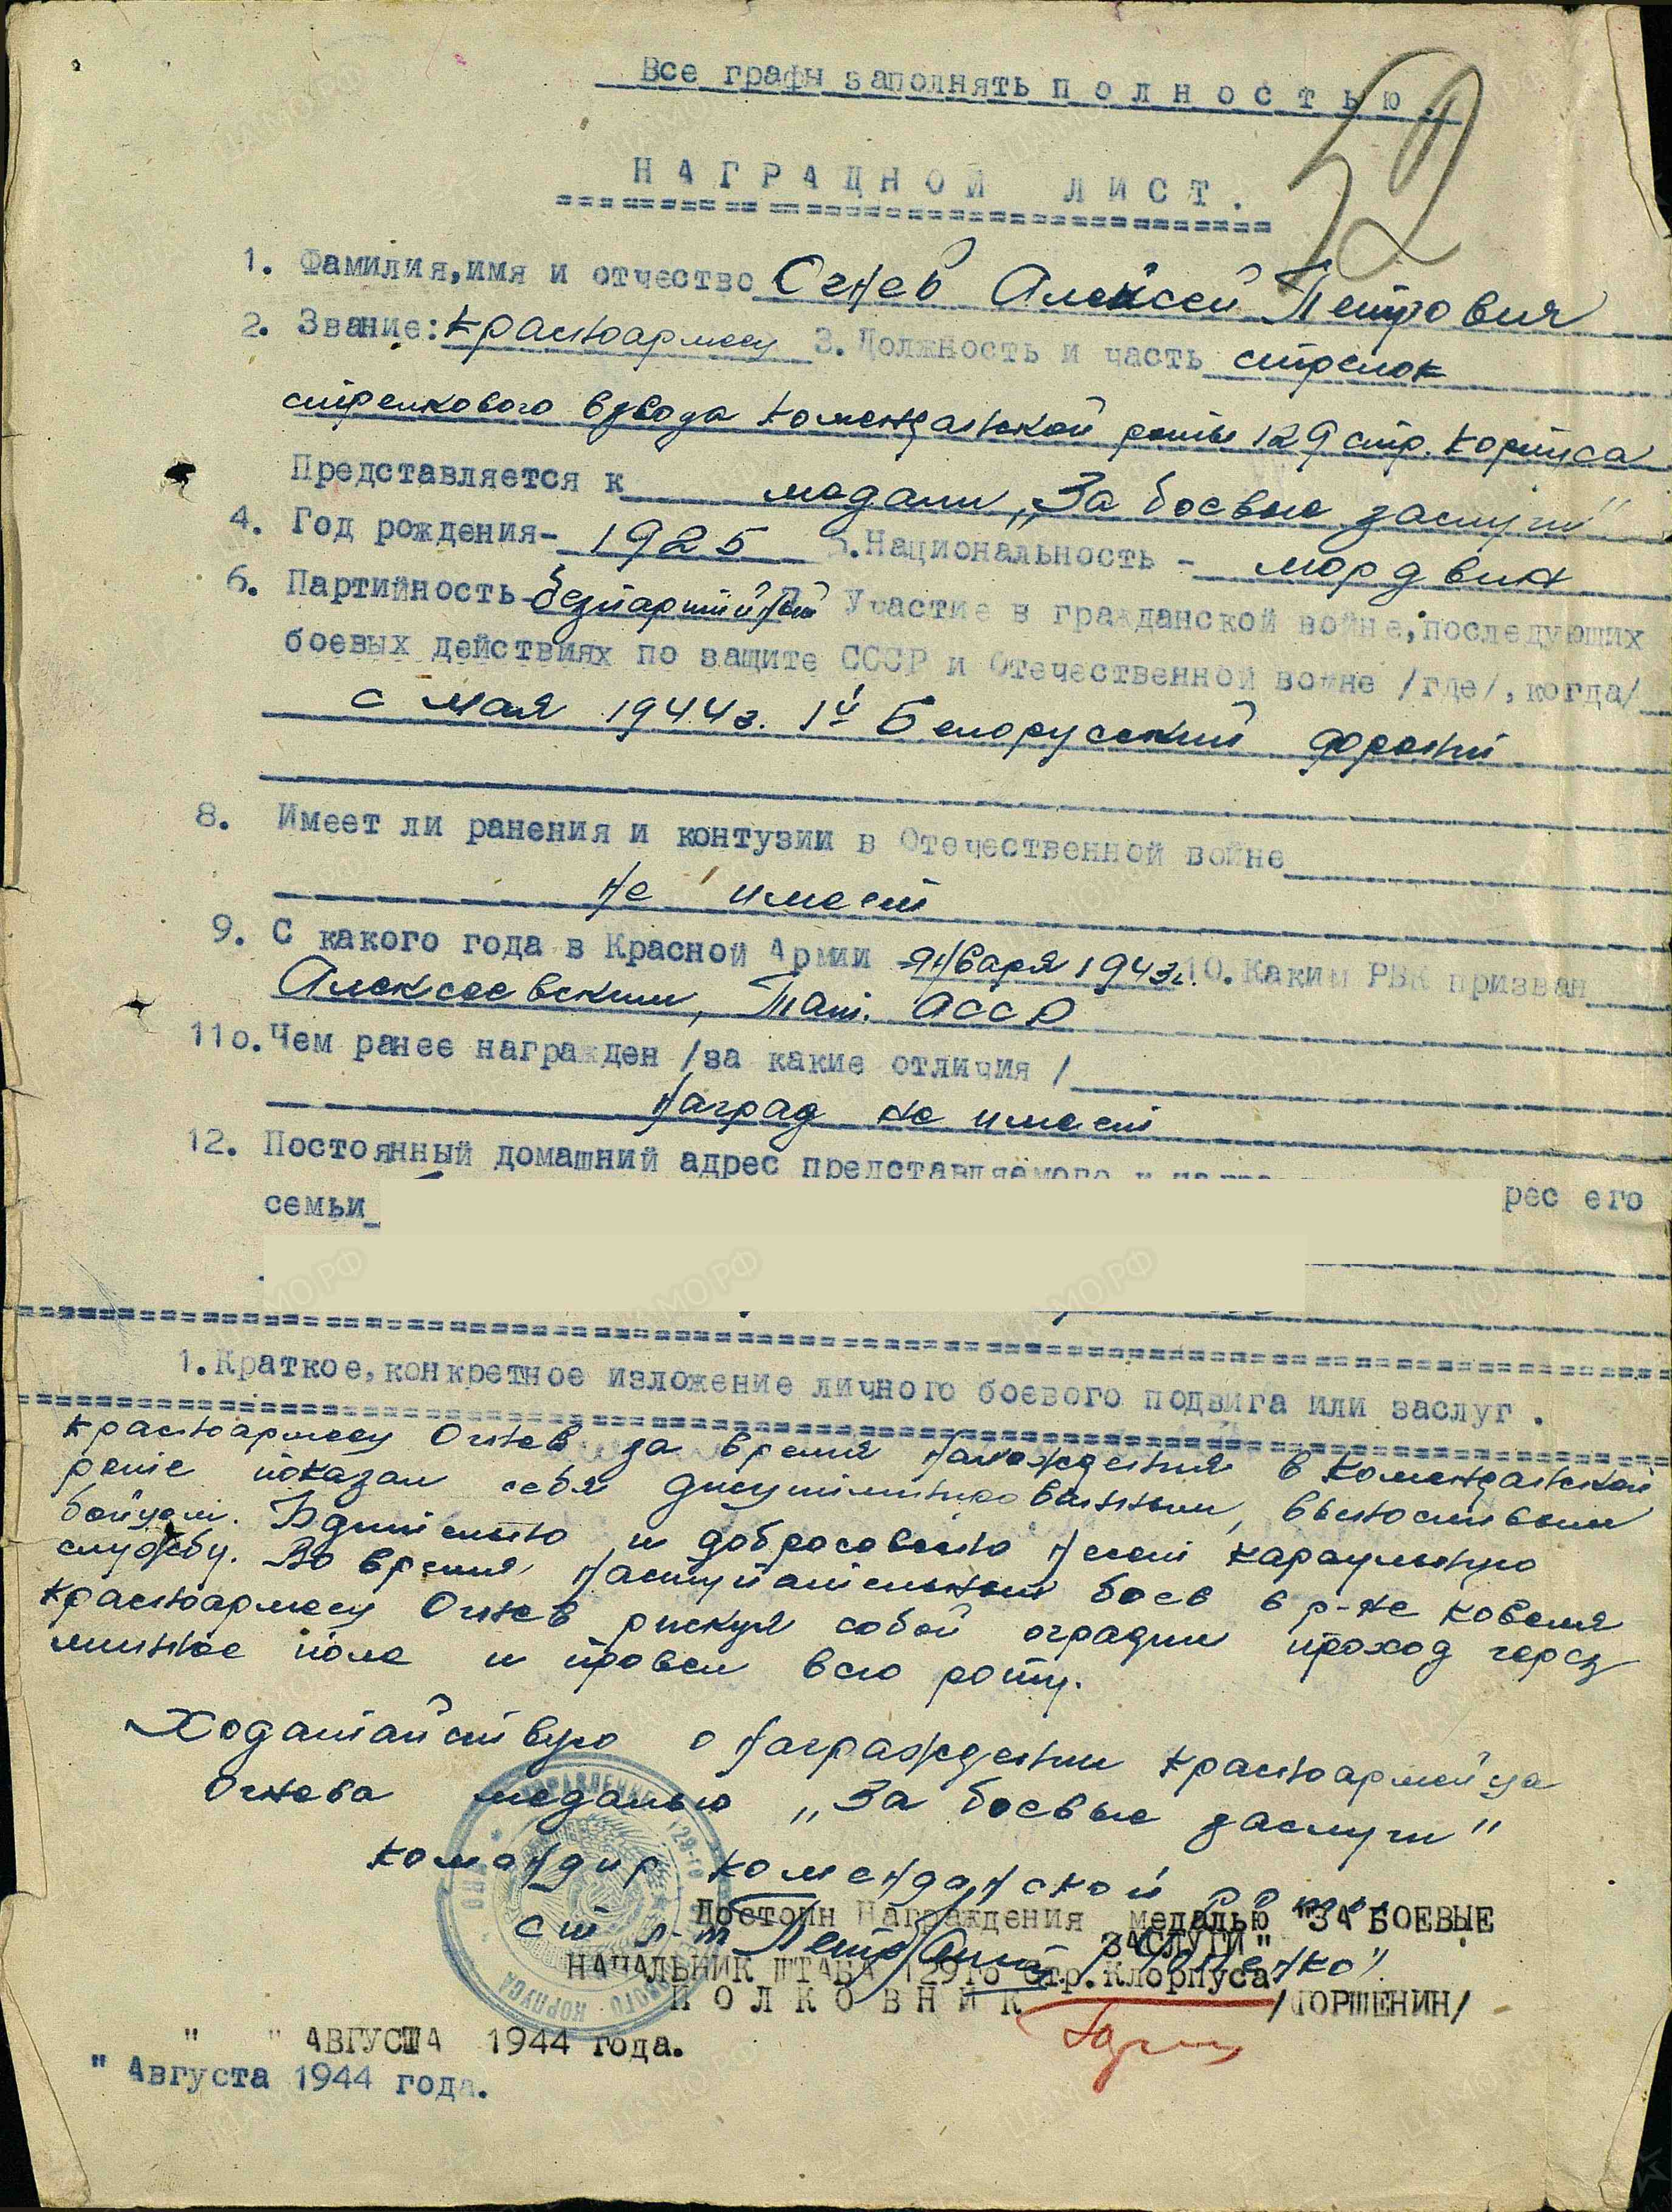 Все графы заполнять п о л н о с т ь ю .
52
Н А Г Р А Д Н О Й   Л И С Т .
1. Фамилия,имя и отчество Огнев Алексей Петрович
2. Звание: красноармеец 3. Должность и часть стрелок
стрелкового взвода комендантской роты 129 стр. корпуса
Представляется к медали „За боевые заслуги"
4. Год рождения- 1925 5. Национальность - мордвин
6. Партийность- безпартийный 7. Участие в гражданской войне, последующих
боевых действиях по защите СССР и Отечественной войне /где/, когда/
с мая 1944 г. 1й Белорусский фронт
8. Имеет ли ранения и контузии в Отечественной войне
не имеет
9. С какого года в Красной Армии января 1943г. 10. Каким РВК призван
Алексеевским, Тат. АССР
11о. Чем ранее награжден /за какие отличия /
наград не имеет
12. Постоянный домашний адрес представляемого к рес его
семьи
1. Краткое, конкретное изложение личного боевого подвига или заслуг .
Красноармеец Огнев за время нахождения в комендантской
роте показал себя дисциплинированным, выносливым
бойцом. Бдительно и добросовестно несет караульную
службу. Во время наступательных боев в р-не Ковеля
красноармеец Огнев рискуя собой оградил проход через
минное поле и провел всю роту.
Ходатайствую о награждении красноармейца
Огнева медалью „За боевые заслуги"
командир комендантской роты
ст л-т
Достоин Награждения медалью "ЗА БОЕВЫЕ
ЗАСЛУГИ"
НАЧАЛЬНИК ШТАБА 129го стр.Клорпуса
П О Л К О В Н И К /ГОРШЕНИН/
" " АВГУСТА 1944 года.
" Августа 1944 года.
УПРАВЛЕНИЕ 129-го КОРПУСА
ЦАМО РФ